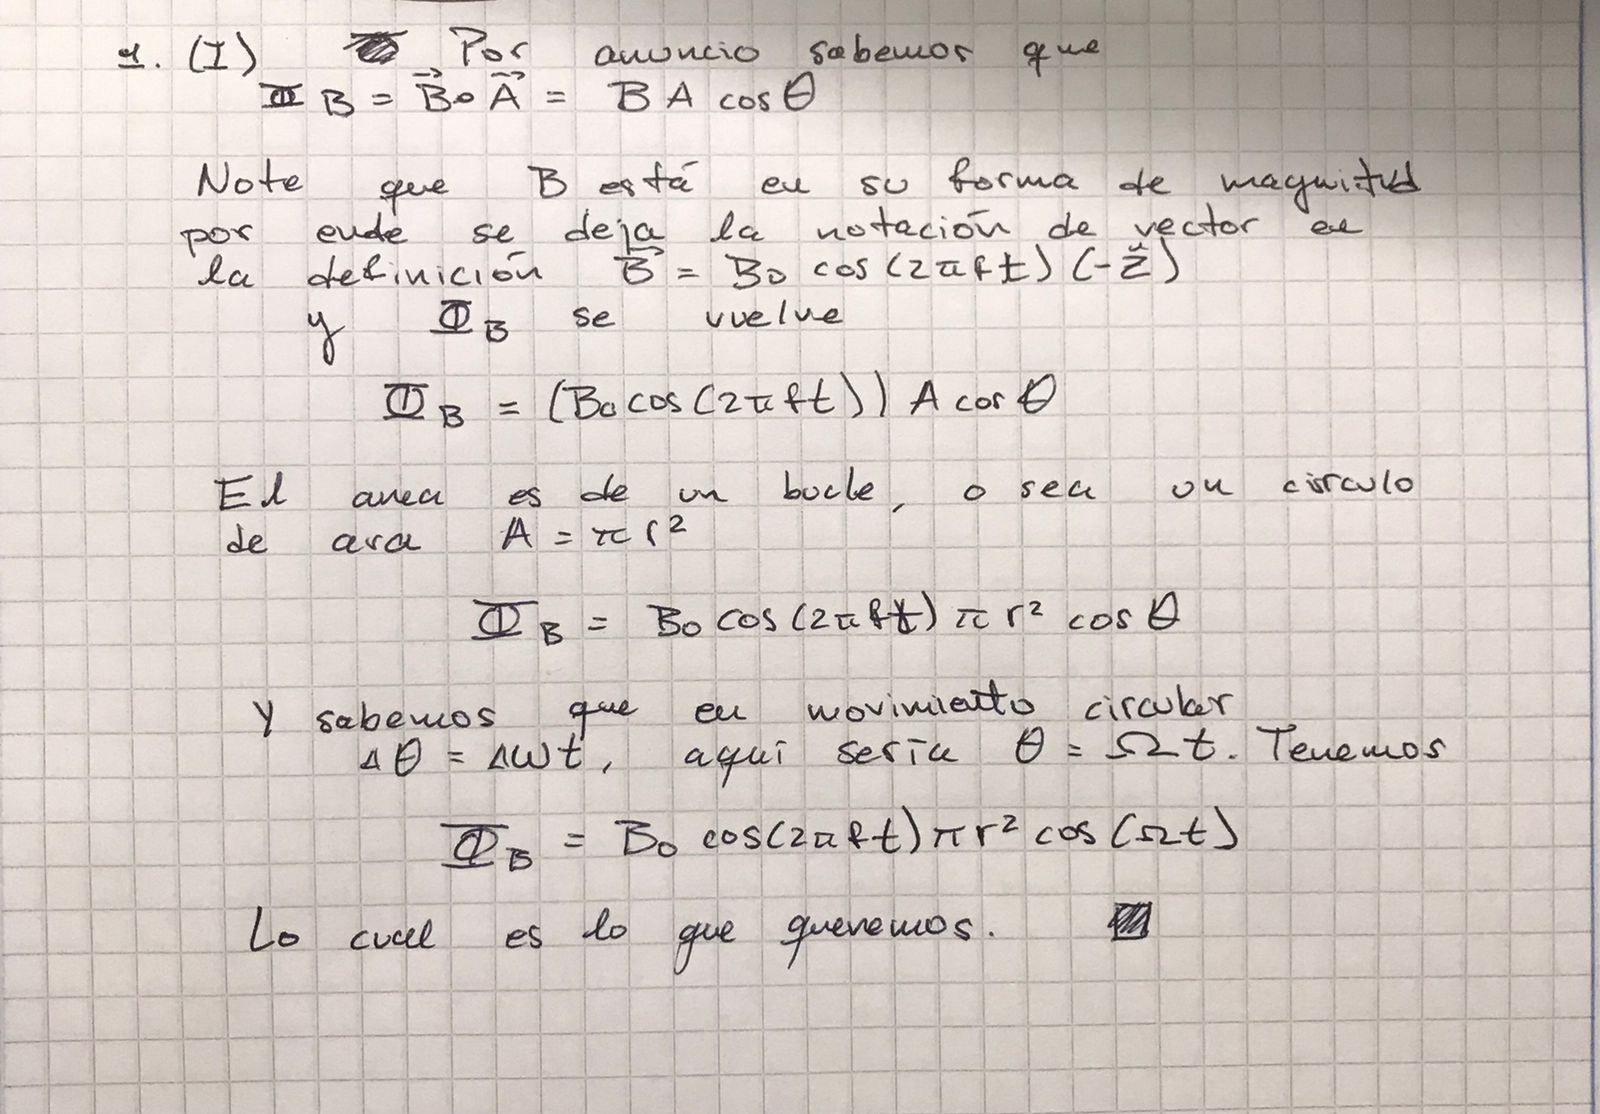 1. (I) Por anuncio sabemos que
Φ B = B⃗ ∘ A⃗ = B A cos θ
Note que B está en su forma de magnitud
por ende se deja la notación de vector en
la definición B⃗ = B₀ cos (2πft) (-ẑ)
y Φ_B se vuelve
Φ_B = (B₀ cos (2πft)) A cos θ
El area es de un bucle, o sea un circulo
de ara A = πr²
Φ_B = B₀ cos (2πft) π r² cos θ
Y sabemos que en movimiento circular
Δθ = Δωt, aquí sería θ = Ωt. Tenemos
Φ_B = B₀ cos(2πft) π r² cos (Ωt)
Lo cual es lo que queremos.